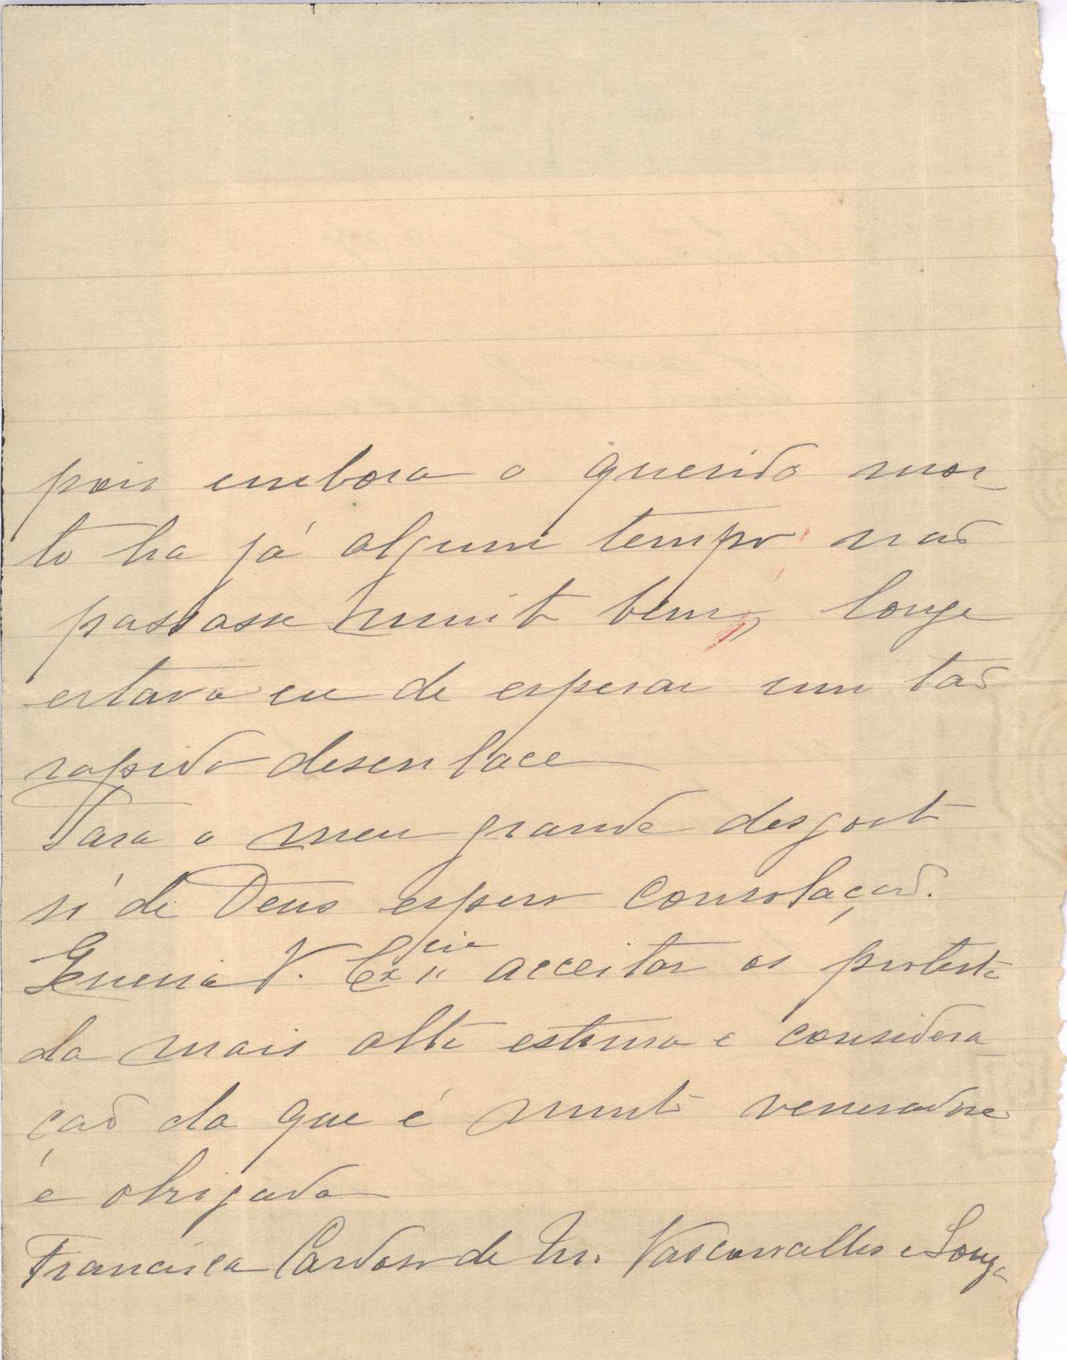 pois embora o querido mor-
to ha já algum tempo não
passasse muito bem, longe
estava eu de esperar um tão
rapido desenlace
Para o meu grande desgosto
só de Deus espero consolação.
Queira V. Excia acceitar os protestos
da mais alta estima e considera-
ção da que é muito veneradora
e obrigada
Francisca Cardoso de M. Vasconcellos e Souza